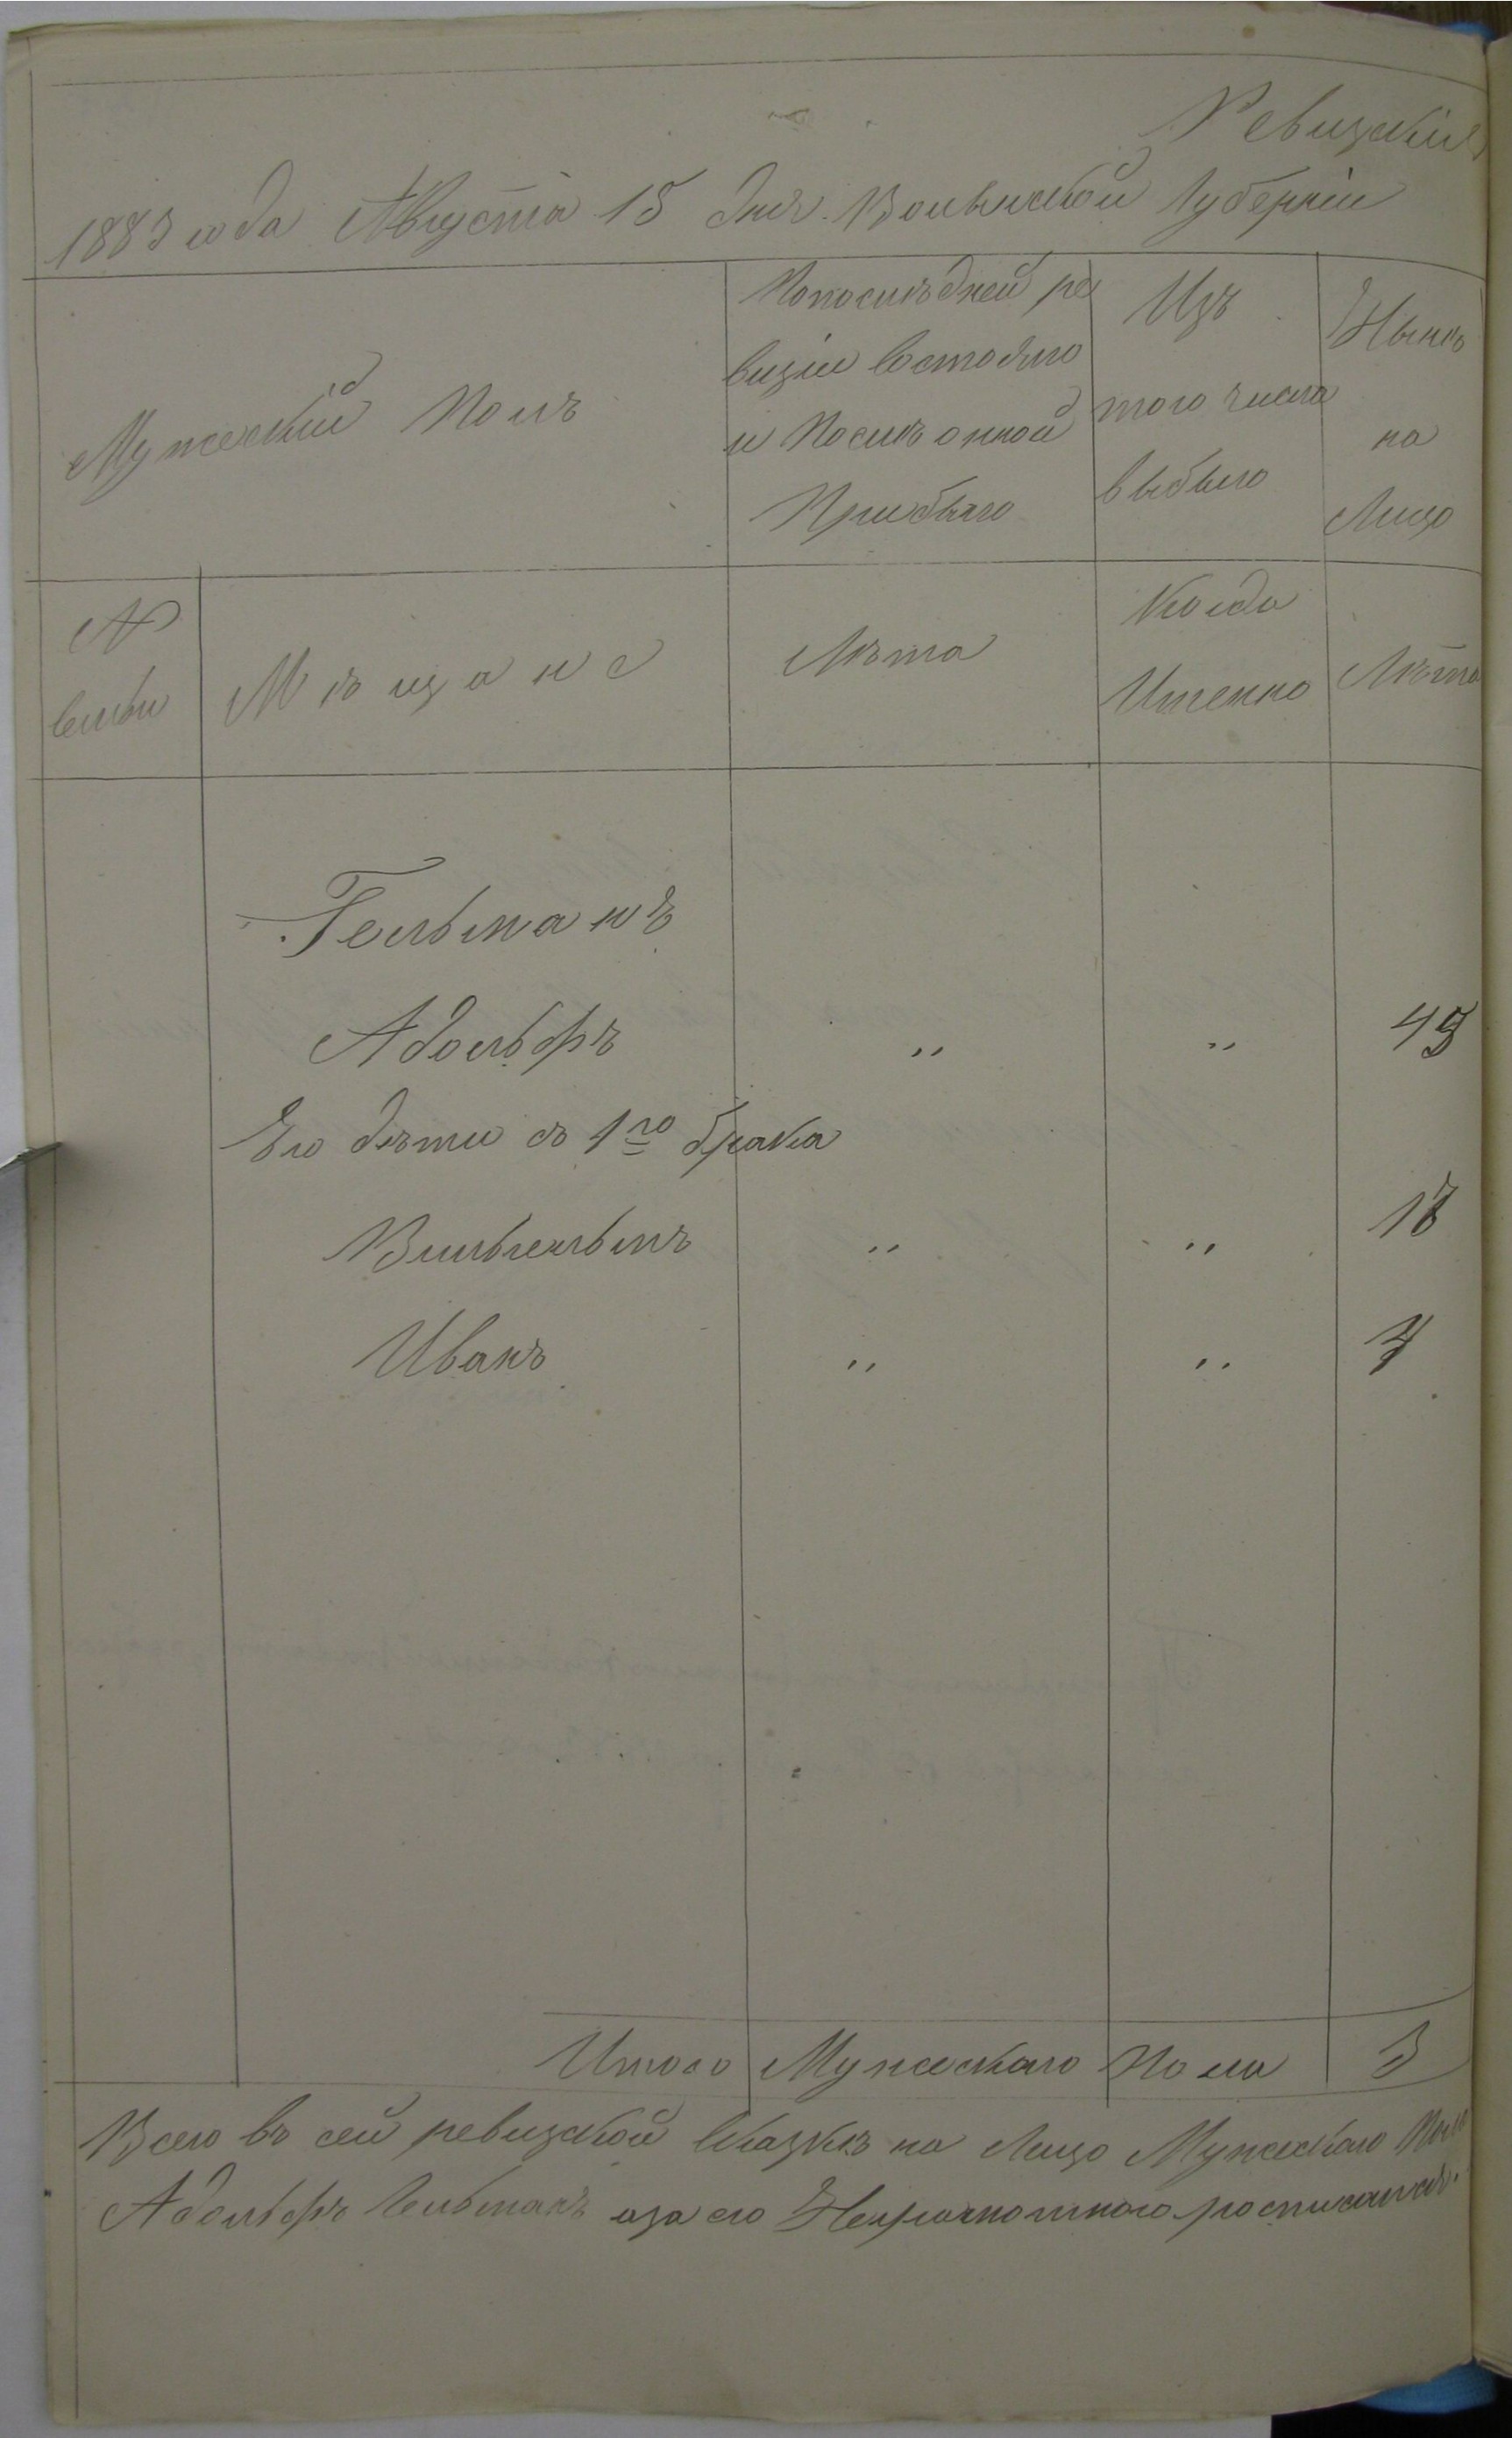 Ревизскія
1883 года Августа 15 дня. Волынской Губерніи
Мужескій Полъ
По послѣдней ре
визіи состояло
и послѣ оной
Прибыло
Изъ
того числа
выбыло
Нынѣ
на
Лицо
№
семьи
Мѣщане
Лѣта
Когда
Именно
Лѣта
Гельманъ
Адольфъ " "
Его дѣти съ 1го брака
Вильгельмъ " "
Иванъ " "
Итого Мужескаго Пола 3
Всего въ сей ревизской сказкѣ на Лицо Мужескаго Пола
Адольфъ Гельманъ а за его Неграмотного росписался.